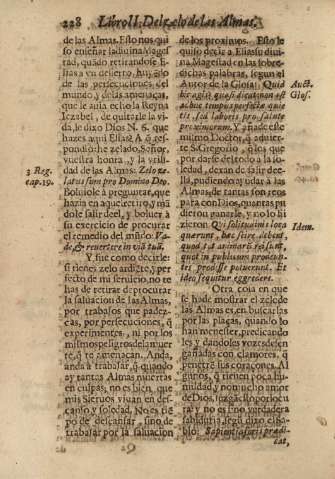 228 Libro II. Del zelo de las Almas.
de las Almas. Esto nos qui
so enseñar la diuina Mages
tad, quãdo retirandose E
lias a vn desierto, huyẽdo
de las persecuciones del
mundo, y de las amenaças
que le auia echo la Reyna
Iezabel, de quitarle la vi
da, le dixo Dios N. S. que
hazes aqui Elias? A q̃ res
pondiò: he zelado, Señor,
vuestra honra, y la vtili
dad de las Almas: Zelo ze
latus sum pro Domino Deo.
Boluiole à preguntar, que
hazia en aquel retiro, y mã
dole salir del, y boluer à
su exercicio de procurar
el remedio del mũdo: Va
de, & reuertere in viã tuã.
Y fue como dezirle:
si tienes zelo ardiẽte, y per
fecto de mi seruicio, no te
has de retirar de procurar
la saluacion de las Almas,
por trabajos que padez-
cas, por persecuciones, q̃
experimentes, ni por los
mismos peligros de la muer
te, q̃ te amenaçan. Anda,
anda à trabajar, q̃ quando
ay tantas Almas muertas
en culpas, no es bien, que
mis Sieruos viuan en des-
canso y soledad. No es tiẽ
po de descansar, sino de
trabajar por la saluacion
3 Reg.
cap. 19.
de los proximos. Esto le
quiso dezir à Elias su diui
na Magestad en las sobre-
dichas palabras, segun el
Autor de la Glosa: Quid
hic agis quasi dicat: non est
adhuc tempus perfectæ quie
tis sed laboris pro salute
proximorum. Y añade este
mismo Doctor, q̃ aduier-
te S. Gregorio, q̃ los que
por darse del todo a la so-
ledad, dexan de salir de
lla, pudiendo ayudar à las
Almas de tantas son reos
para con Dios, quantas pu
dieron ganarle, y no lo hi
zieron. Qui solitudinis loca
quærunt, hæc scire debent,
quod tot animarũ rei sunt,
quot in publicum procedun-
tes prodesse potuerunt. Et
ideo sequitur egredere.
Otra cosa en que
se hade mostrar el zelo de
las Almas es, en buscarlas
por las plaças, quando lo
han menester, predicando
les y dandoles vozes desen
gañadas con clamores, q̃
penetrẽ sus coraçones. Al
gunos, q̃ tienen poca hu-
mildad, y no mucho amor
de Dios, juzgaràslo por locu
ra; y no es sino verdadera
sabiduria, segũ dixo el Sa-
bio: Sapientia foris prædi-
cat,
Auct.
Glos.
Idem.